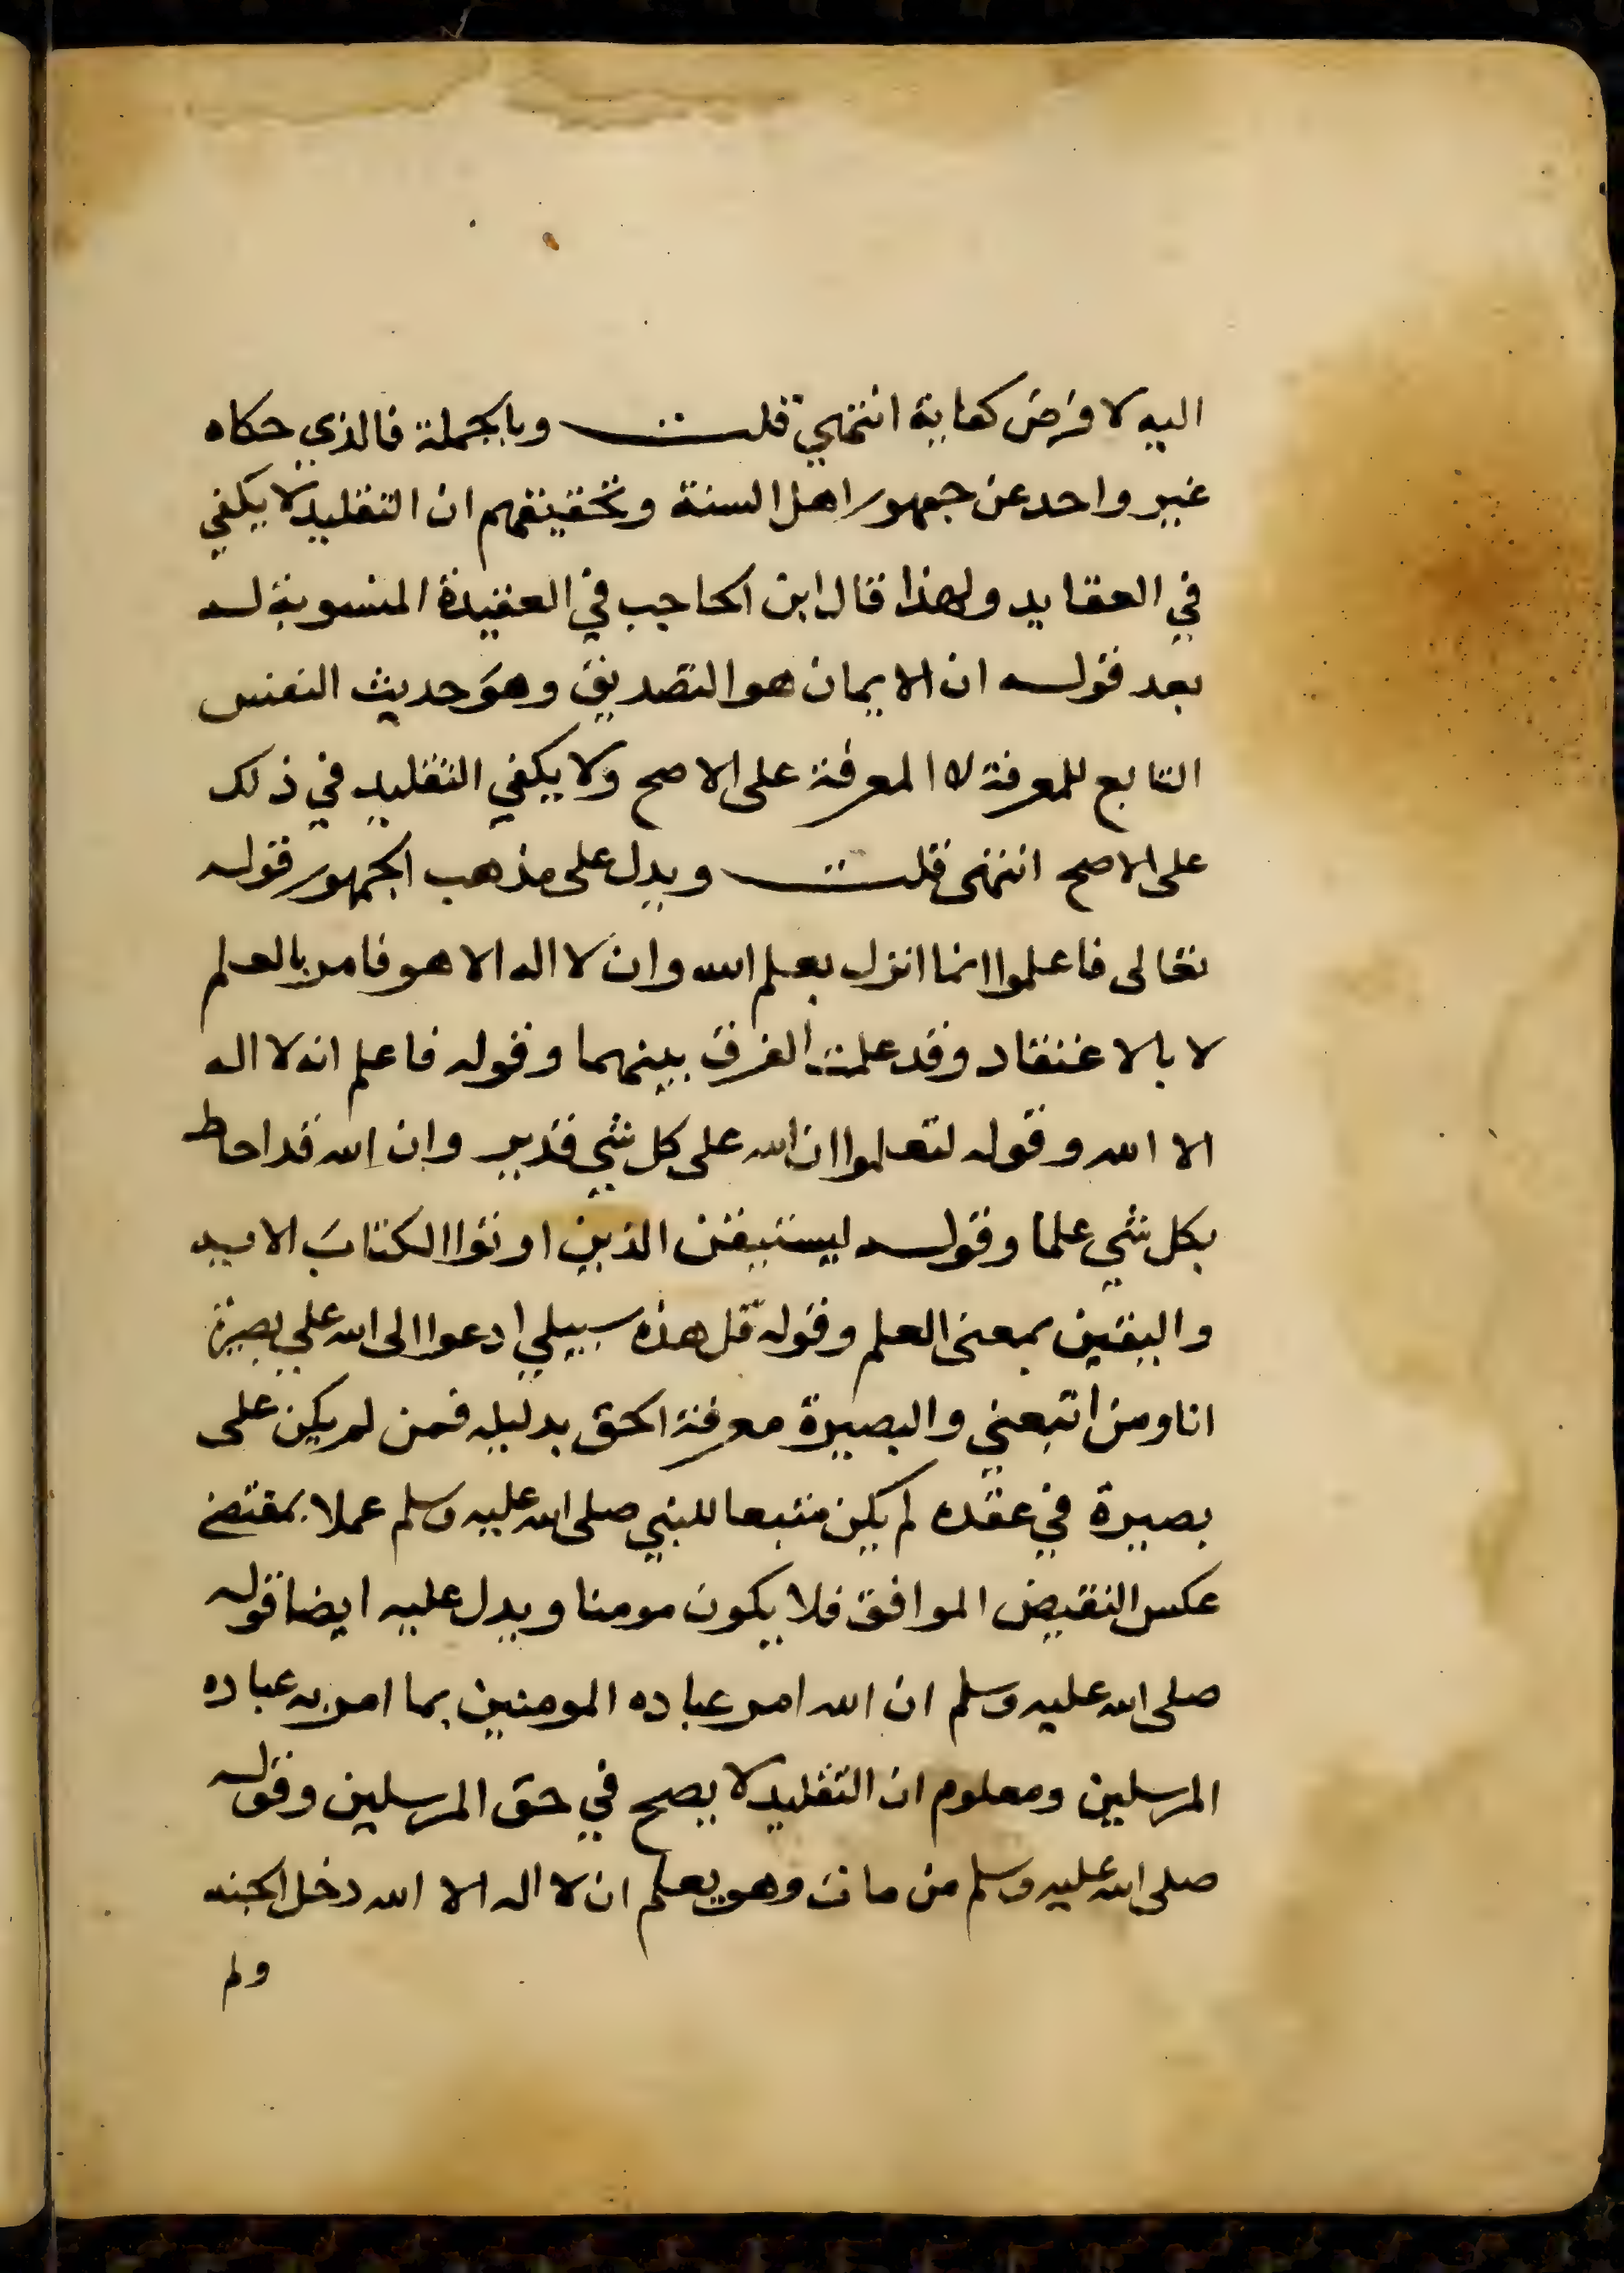 اليه لا فرض كفاية انتهي قلت وبالجملة فالذي حكاه
غير واحد عن جمهور اهل السنة وتحقيقهم ان التقليد لا يكفي
في العقايد ولهذا قال ابن الحاجب في العقيدة المنسوبة له
بعد قوله ان الايمان هو التصديق وهو حديث النفس
التابع للمعرفة لا المعرفة على الاصح ولا يكفي التقليد في ذلك
على الاصح انتهى قلت ويدل على مذهب الجمهور قوله
تعالى فاعلموا انما انزل بعلم الله وان لا اله الا هو فامر بالعلم
لا بالاعتقاد وقد علمت الفرق بينهما وقوله فاعلم انه لا اله
الا الله وقوله لتعلموا ان الله على كل شي قدير وان الله قد احاط
بكل شي علما وقوله ليستيقن الذين اوتوا الكتاب الاية
واليقين بمعنى العلم وقوله قل هذه سبيلي ادعوا الى الله علي بصيرة
انا ومن اتبعني والبصيرة معرفة الحق بدليله فمن لم يكن على
بصيرة في عقده لم يكن متبعا للنبي صلى الله عليه وسلم عملا بمقتضى
عكس النقيض الموافق فلا يكون مومنا ويدل عليه ايضا قوله
صلى الله عليه وسلم ان الله امر عباده المومنين بما امر به عباده
المرسلين ومعلوم ان التقليد لا يصح في حق المرسلين وقوله
صلى الله عليه وسلم من مات وهو يعلم ان لا اله الا الله دخل الجنة
ولم